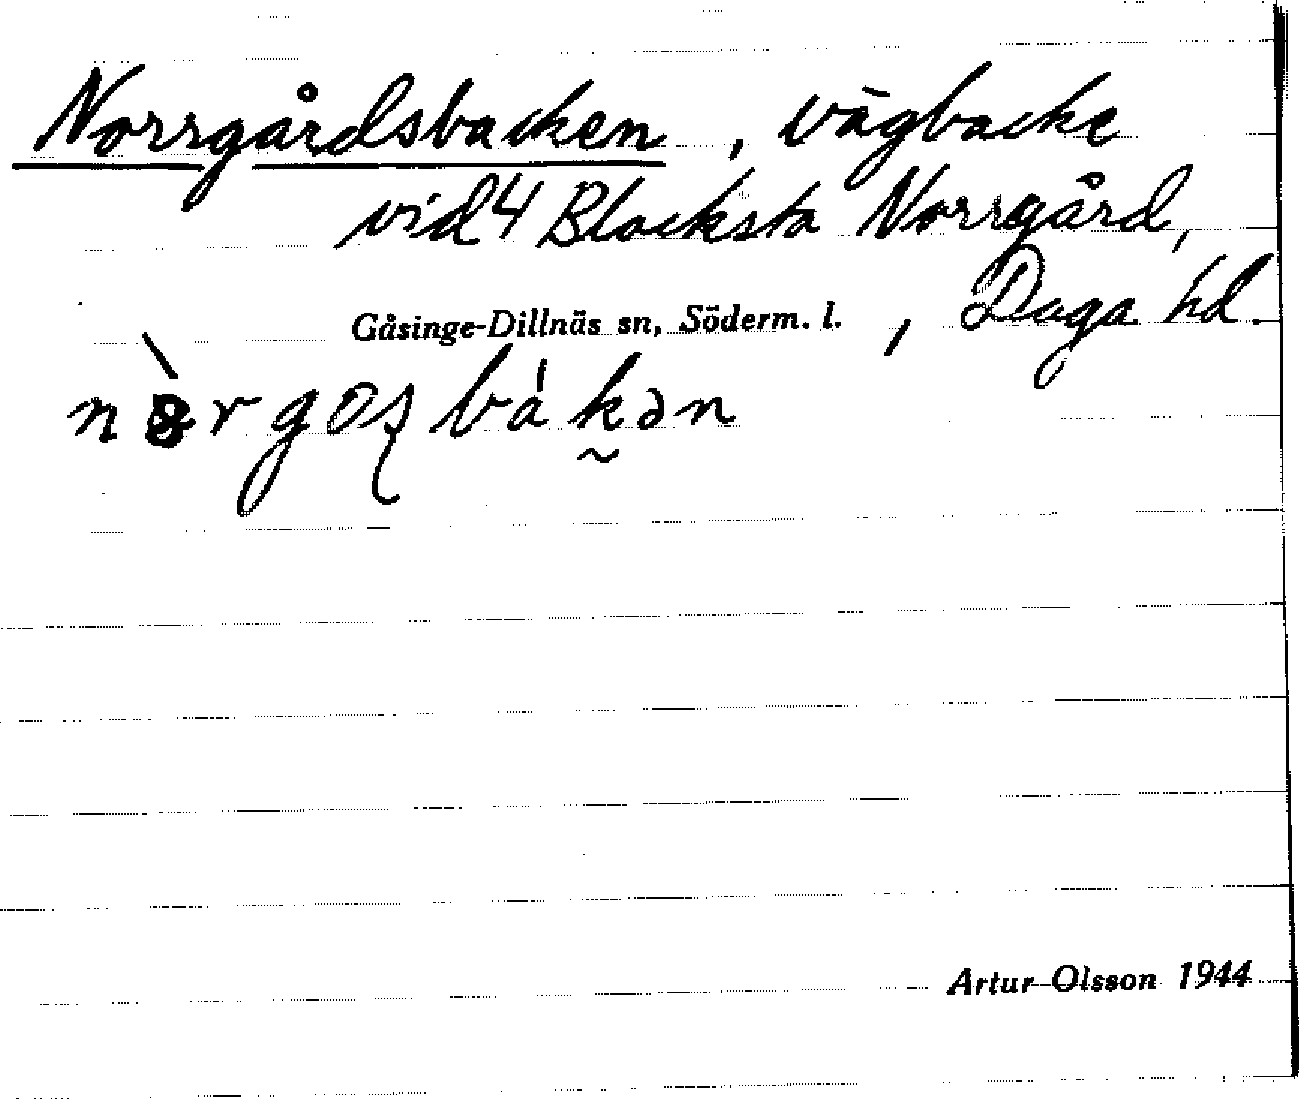 Norrgårdsbacken, vägbacke
vid 4 Blacksta Norrgård,
Gåsinge-Dillnäs sn, Söderm. l. , Daga hd.
Artur Olsson 1944